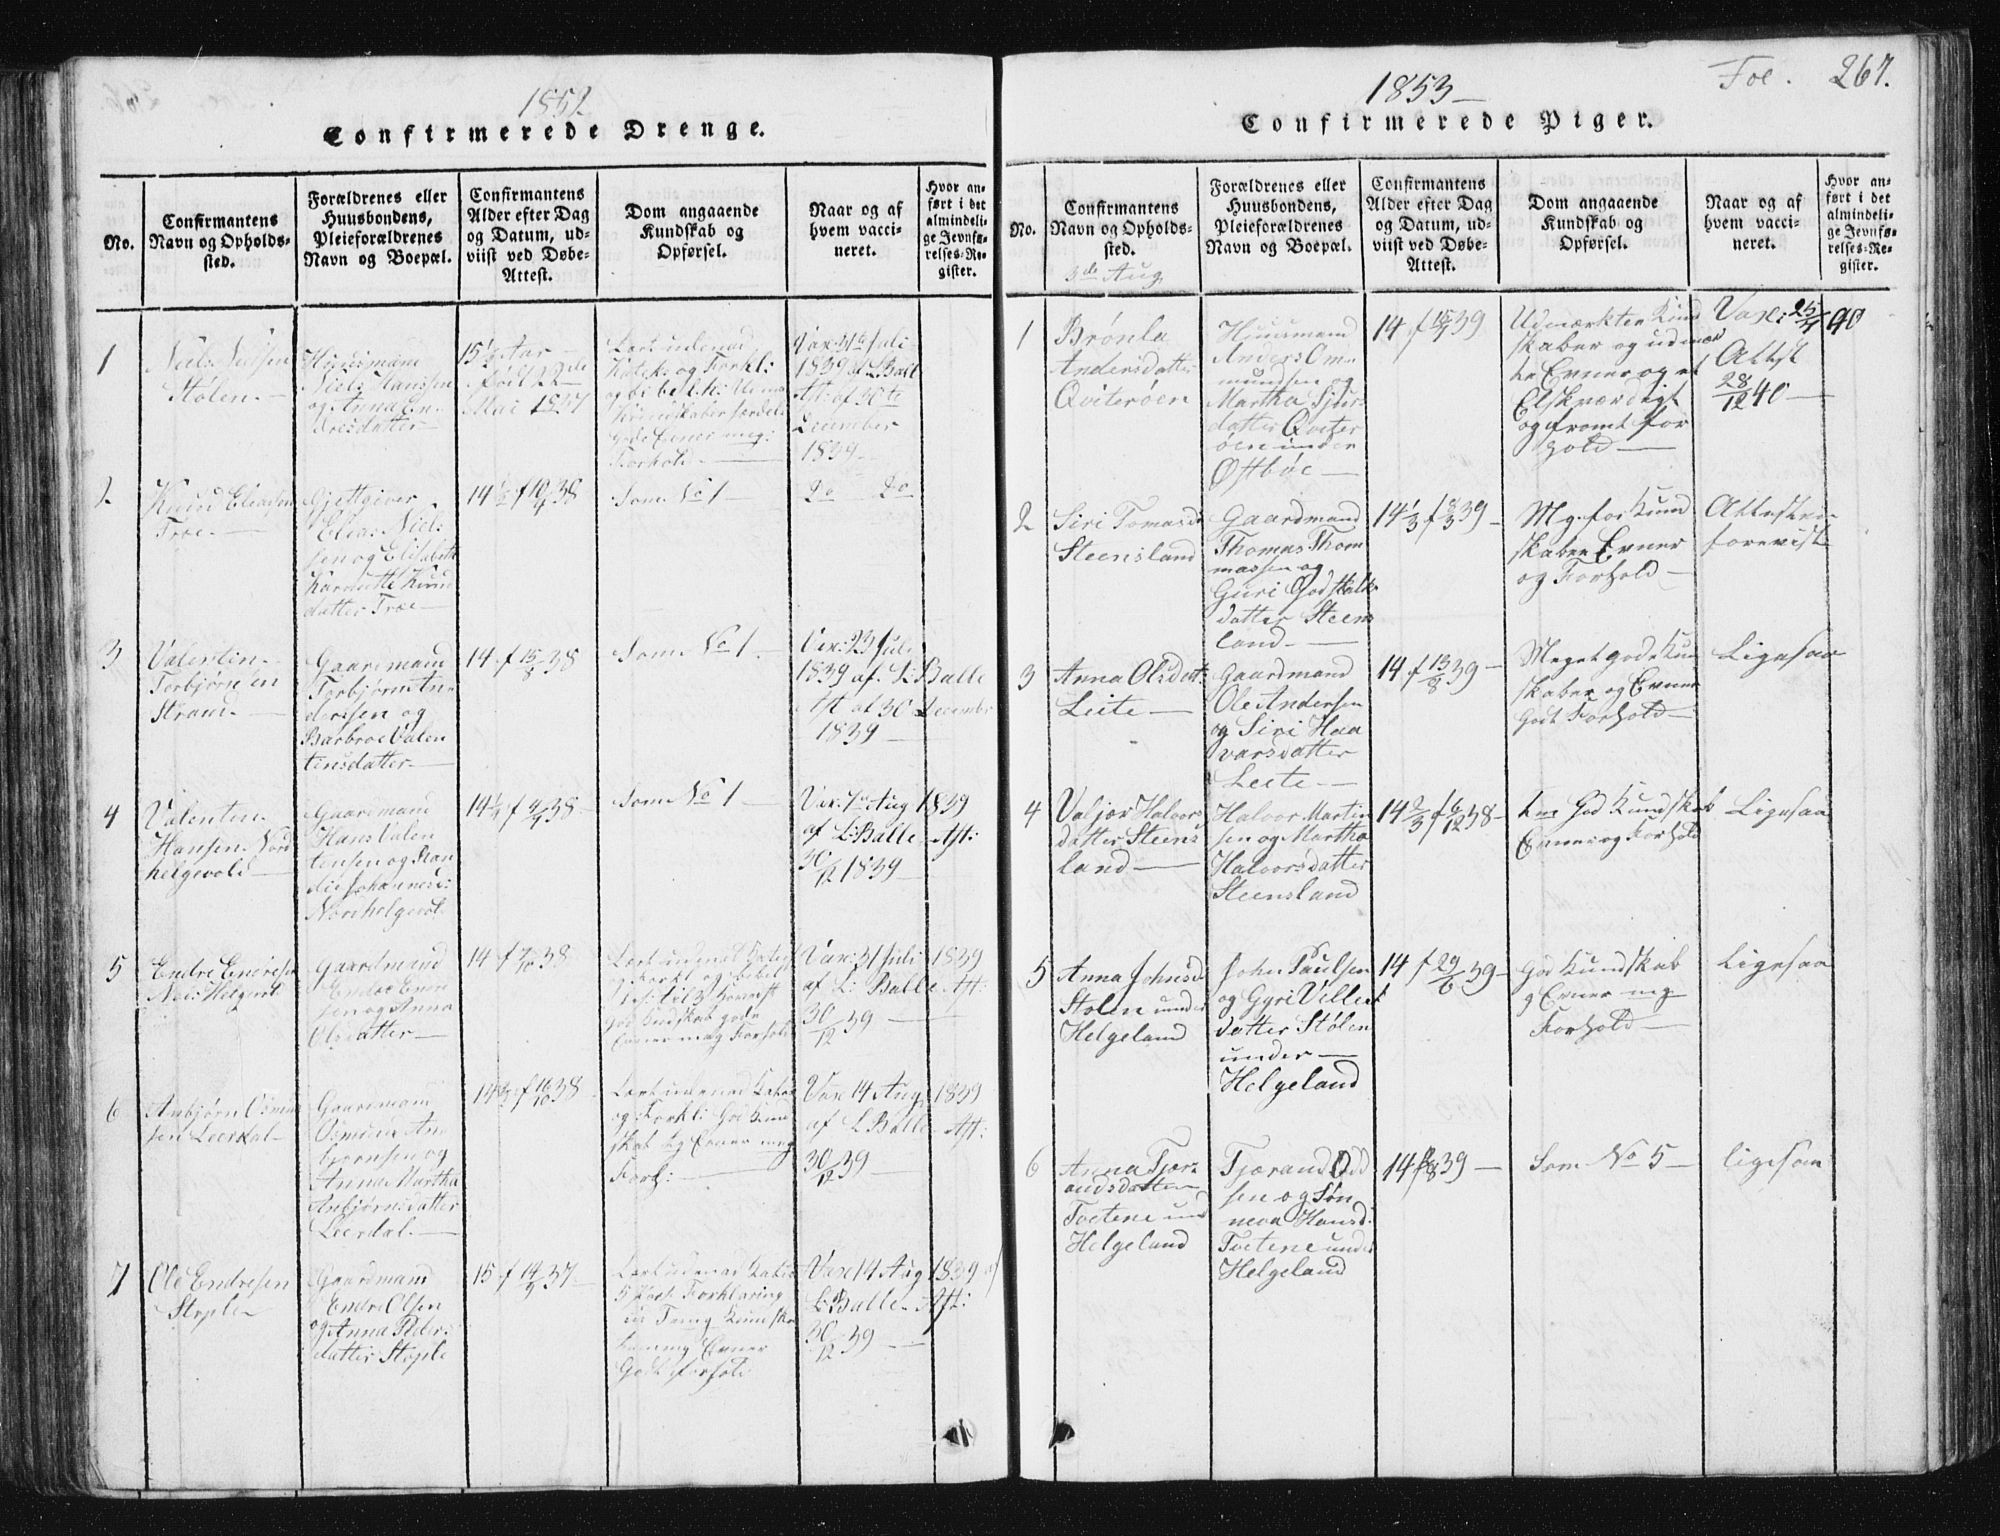 1852
Confirmerede Drenge.
No.
Confirmantens
Navn og Opholds-
sted.
Forældrenes eller
Huusbondens,
Pleieforældrenes
Navn og Boepæl.
Confirmantens
Alder efter Dag
og Datum, ud-
viist ved Døbe-
Attest.
Dom angaaende
Kundskab og
Opførsel.
Naar og af
hvem vacci-
neret.
Hvor an-
ført i det
almindeli-
ge Jevnfø-
relses-Re-
gister.
1
Niels Nielsen
Stølen
Huusmand
Niels Hanssen
og Anna En-
dresdatter
15 1/2 Aar
fød 22de
Mai 1837
Lært udenad
Forhold
Vax: 31te Juli
1839 af L: Balle
Att: af 30te
December
1839
2
Knud Eliassen
Træe
Gjestgiver
Elias Niel-
sen og Elisabeth
Knud
datter Træe
14 1/2 f 10/4 38
Som No 1
do do
3
Valentin
Torbjørnsen
Straum
Gaardmand
Torbjørn An-
derssen og
Barbroe Valen
tinsdatter
14 f 15/8 38
Som No 1
Vax: 23 Juli
1839 af L: Balle
Att af 30 December
1839
4
Valentin
Hansen Nord
helgevold
Gaardmand
Hans Valen
tensen og Ran
die Johannesd:
Nordhelgevol
14 1/4 f 38
Som No 1
Vax: 7de Aug 1839
af L: Balle Att:
30/12 1839
5
Endre Endresen
Gaardmand
Endre Endre
sen og Anna
Olsdatter
14 f 7/10 38
God Kundskab gode
Evner meg Forhold
Vax: 31 Juli 1839
af L: Balle Att:
30/12 39
6
Anbjørn Osmun
sen Leerdal
Gaardmand
Osmund An
bjørnsen og
Anna Martha
Anbjørnsdatter
Leerdal
14 f 16/10 38
Lært udenad
og Forkl: God Kund
skab og Evner meg
Forh:
Vax 14 Aug 1839
af L Balle Att:
30/12 39
7
Ole Endresen
Stople
Gaardmand
Endre Olsen
og Anna Peder-
datter Stople
15 f 14/9 37
Lært udenad
5 Part Forklaring
Evner
Godt forhold
Vax 14 Aug 1839 af
L: Balle Att:
30/12 39
1853
Foe. 267.
Confirmerede Piger.
No.
Confirmantens
Navn og Opholds-
sted.
3de Aug
Forældrenes eller
Huusbondens,
Pleieforældrenes
Navn og Boepæl.
Confirmantens
Alder efter Dag
og Datum, ud-
viist ved Døbe-
Attest.
Dom angaaende
Kundskab og
Opførsel.
Naar og af
hvem vacci-
neret.
Hvor an-
ført i det
almindeli-
ge Jevnfø-
relses-Re-
gister.
1
Brønla
Andersdatter
Qviterøen
Huusmand
Anders Om-
mundsen og
Martha Sjur-
datter Qviter
øen under
Østbøe
14 f 39
Udmærkter Kund
skaber og udmær
te Evner og et
Elskværdigt
og fromt for
hold
Vaxi 25/7 40
Attst
28/12 40
2
Siri Tomasd
Steensland
Gaardmand
Thomas Thom
massen og
Guri Godskalks
datter Steens
land
14 1/3 f 8/3 39
Mg. for Kund
skaber Evner
og Forhold
Attesten
forevist
3
Anna Olsdatt:
Leite
Gaardmand
Ole Andersen
og Siri Haa
varsdatter
Leite
14 f 13/8 39
Meget gode Kun
skaber og Evner
Godt Forhold
Ligesaa
4
Valjør Halvors
datter Steens
land
Halvor Martin
sen og Martha
Halvorsdatter
Steensland
14 2/3 f 6/12 38
God Kundskab
Evner og Forhold
Ligesaa
5
Anna Johnsd
Stølen under
Helgeland
John Paulsen
og Gyri Villeit
datter Stølen
under
Helgeland
14 f 29/6 39
God Kundskab
g Evner mg
Forhold
Ligesaa
6
Anna Tjær-
andsdatter
Tvetene und
Helgeland
Tjærand Odd
sen og Søn
neva Hansd:
Tvetene under
Helgeland
14 39
Som No 5
ligesaa